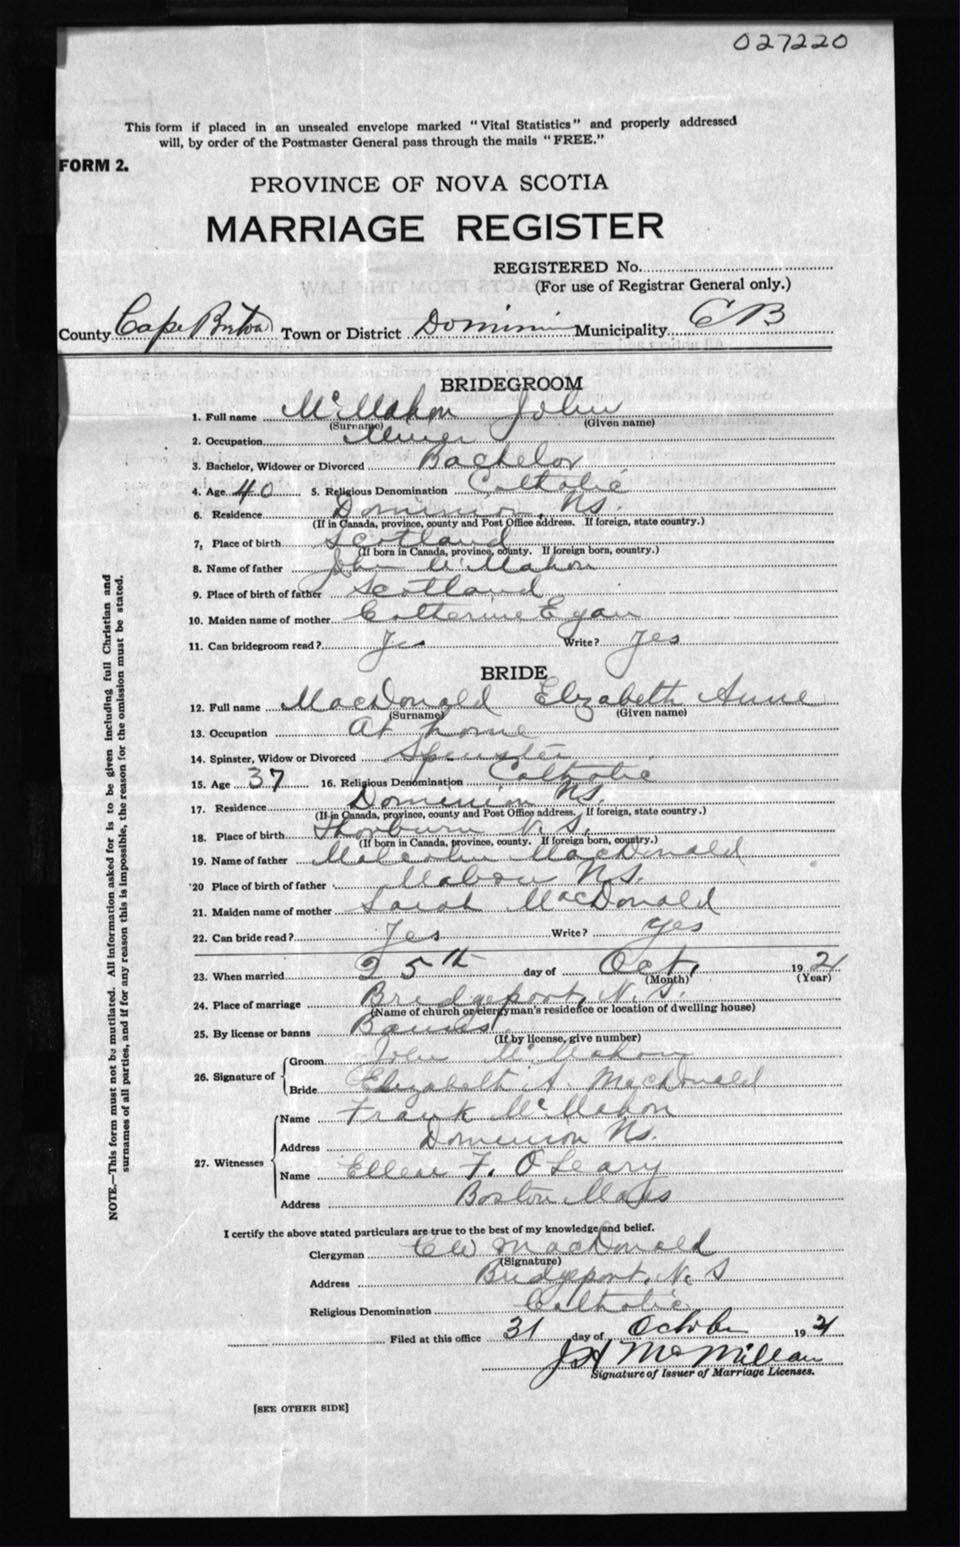 027220
This form if placed in an unsealed envelope marked "Vital Statistics" and properly addressed
will, by order of the Postmaster General pass through the mails "FREE."
FORM 2.
PROVINCE OF NOVA SCOTIA
MARRIAGE REGISTER
REGISTERED No.
(For use of Registrar General only.)
County Cape Breton Town or District Dominion Municipality CB
BRIDEGROOM
1. Full name McMahon John
(Surname) (Given name)
2. Occupation Miner
3. Bachelor, Widower or Divorced Bachelor
4. Age 40 5. Religious Denomination Catholic
6. Residence Dominion, NS.
(If in Canada, province, county and Post Office address. If foreign, state country.)
7, Place of birth Scotland
(If born in Canada, province, county. If foreign born, country.)
8. Name of father John McMahon
9. Place of birth of father Scotland
10. Maiden name of mother Catherine Egan
11. Can bridegroom read? Yes Write? Yes
BRIDE
12. Full name MacDonald Elizabeth Anne
(Surname) (Given name)
13. Occupation At home
14. Spinster, Widow or Divorced Spinster
15. Age 37 16. Religious Denomination Catholic
17. Residence Dominion NS.
(If in Canada, province, county and Post Office address. If foreign, state country.)
18. Place of birth Thorburn N.S.
(If born in Canada, province, county. If foreign born, country.)
19. Name of father Malcolm MacDonald
20 Place of birth of father Mabou N.S.
21. Maiden name of mother Sarah MacDonald
22. Can bride read? Yes Write? yes
23. When married 25th day of Oct. 1921
(Month) (Year)
24. Place of marriage Bridgeport, N.S.
(Name of church or clergyman's residence or location of dwelling house)
25. By license or banns Banns
(If by license, give number)
26. Signature of Groom John McMahon
Bride Elizabeth A. MacDonald
27. Witnesses Name Frank McMahon
Address Dominion NS.
Name Ellen F. O'Leary
Address Boston Mass
I certify the above stated particulars are true to the best of my knowledge and belief.
Clergyman CW MacDonald
(Signature)
Address Bridgeport, N.S
Religious Denomination Catholic
Filed at this office 31 day of October 1921
JH McMillan
Signature of Issuer of Marriage Licenses.
[SEE OTHER SIDE]
NOTE.—This form must not be mutilated. All information asked for is to be given including full Christian and
surnames of all parties, and if for any reason this is impossible, the reason for the omission must be stated.